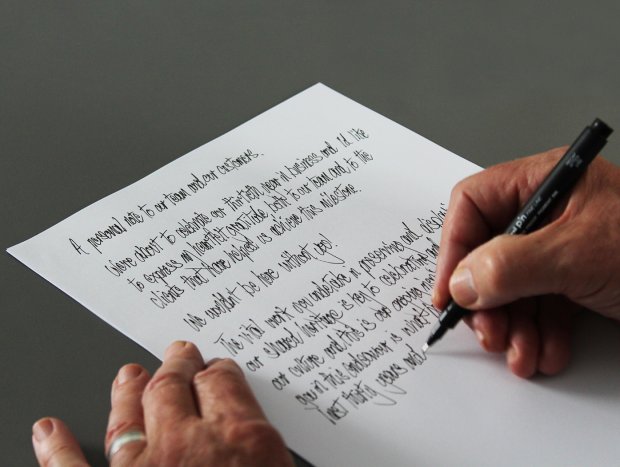 A personal note to our team and our customers.
We're about to celebrate our thirtieth year in business and I'd like
to express my heartfelt gratitude both to our team and to the
clients that have helped us achieve this milestone.
We wouldn't be here without you!
The vital work we undertake in preserving and
our shared heritage is key to celebrating
our culture and this is our
you in this endeavour is what
last thirty years and
pin